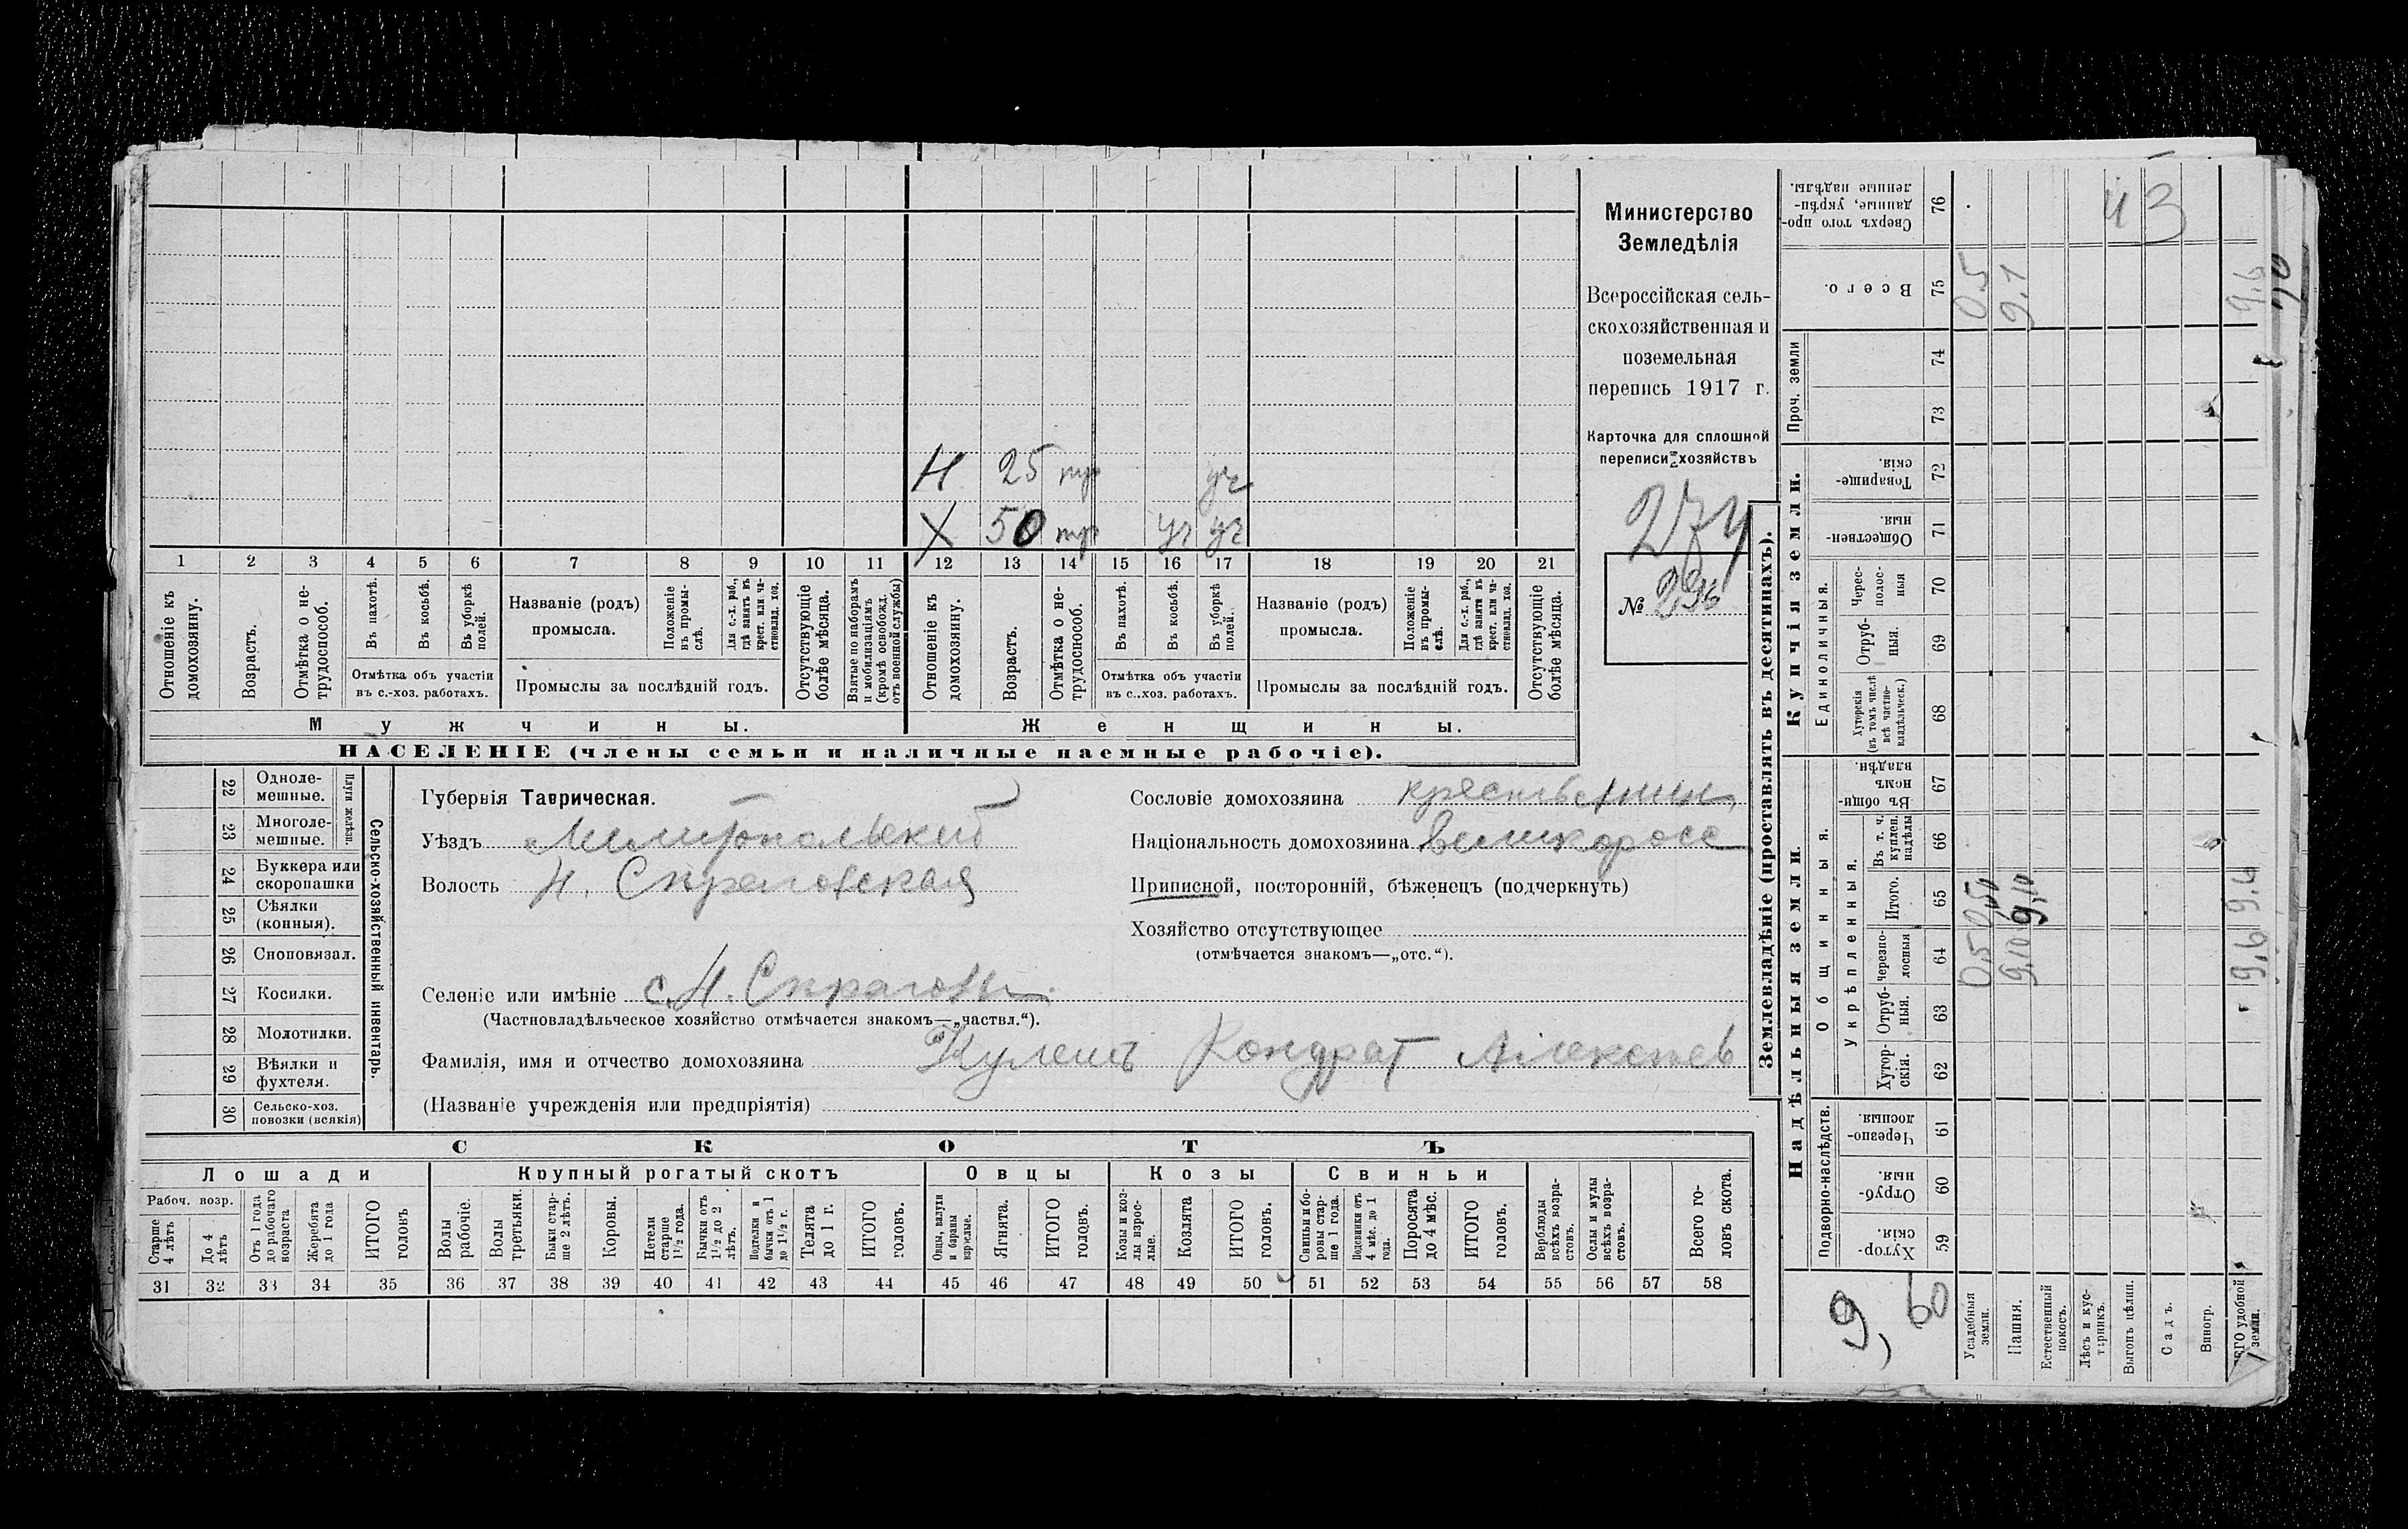 Н 25 тр уч
Х 50 тр уч уч
1 2 3 4 5 6 7 8 9 10 11 12 13 14 15 16 17 18 19 20 21
Отношеніе къ домохозяину.
Возрастъ.
Отмѣтка о не-трудоспособ.
Въ пахотѣ.
Въ косьбѣ.
Въ уборкѣ полей.
Отмѣтка объ участіи
въ с.-хоз. работахъ.
Названіе (родъ)
промысла.
Положеніе въ промы-слѣ.
Для с.-х. раб., гдѣ занятъ въ крест. или ча-стновлад. хоз.
Промыслы за послѣдній годъ.
Отсутствующіе болѣе мѣсяца.
Взятые по наборамъ и мобилизаціямъ (кромѣ освобожд. отъ военной службы)
Отношеніе къ домохозяину.
Возрастъ.
Отмѣтка о не-трудоспособ.
Въ пахотѣ.
Въ косьбѣ.
Въ уборкѣ полей.
Отмѣтка объ участіи
въ с.-хоз. работахъ.
Названіе (родъ)
промысла.
Положеніе въ промы-слѣ.
Для с.-х. раб., гдѣ занята въ крест. или ча-стновлад. хоз.
Промыслы за послѣдній годъ.
Отсутствующіе болѣе мѣсяца.
Мужчины. Женщины.
НАСЕЛЕНІЕ (члены семьи и наличные наемные рабочіе).
Министерство
Земледѣлія
Всероссійская сель-
скохозяйственная и
поземельная
перепись 1917 г.
Карточка для сплошной
переписи хозяйствъ
274
№ 236
22 Одноле-мешные.
23 Многоле-мешные.
Плуги желѣзн.
24 Буккера или скоропашки
25 Сѣялки (конныя).
26 Сноповязал.
27 Косилки.
28 Молотилки.
29 Вѣялки и фухтеля.
30 Сельско-хоз. повозки (всякія)
Сельско-хозяйственный инвентарь.
Губернія Таврическая.
Уѣздъ Мелитопольскій
Волость Н. Скраговская
Селеніе или имѣніе с. Н. Скраговы
(Частновладѣльческое хозяйство отмѣчается знакомъ—„частвл.“).
Фамилія, имя и отчество домохозяина Кулешъ Кондрат Алексеев
(Названіе учрежденія или предпріятія)
Сословіе домохозяина крестьянин,
Національность домохозяина великоросс
Приписной, посторонній, бѣженецъ (подчеркнуть)
Хозяйство отсутствующее
(отмѣчается знакомъ—„отс.“).
СКОТЪ
Лошади Крупный рогатый скотъ Овцы Козы Свиньи
Рабоч. возр.
Старше 4 лѣтъ
До 4 лѣтъ
Отъ 1 года до рабочаго возраста
Жеребята до 1 года
ИТОГО головъ
Волы рабочіе.
Волы третьяки.
Быки стар-ше 2 лѣтъ.
Коровы.
Нетели старше 1½ года.
Бычки отъ 1½ до 2 лѣтъ.
Подтелки и бычки отъ 1 до 1½ г.
Телята до 1 г.
ИТОГО головъ.
Овцы, валухи и бараны взрослые.
Ягнята.
ИТОГО головъ.
Козы и коз-лы взрос-лые.
Козлята
ИТОГО головъ.
Свиньи и бо-ровы стар-ше 1 года.
Подсвинки отъ 4 мѣс. до 1 года.
Поросята до 4 мѣс.
ИТОГО головъ.
Верблюды всѣхъ возра-стовъ.
Ослы и мулы всѣхъ возра-стовъ.
Всего го-ловъ скота.
31 32 33 34 35 36 37 38 39 40 41 42 43 44 45 46 47 48 49 50 51 52 53 54 55 56 57 58
Землевладѣніе (проставлять въ десятинахъ).
Надѣльныя земли.
Купчія земли.
Проч. земли
Подворно-наслѣдств.
Общинныя.
Укрѣпленныя.
Единоличныя.
Хутор-скія. 59
Отруб-ныя. 60
Черезпо-лосныя 61
Хутор-скія. 62
Отруб-ныя. 63
Черезпо-лосныя 64
Итого. 65
Въ т. ч. куплен. надѣлы 66
Въ общин-номъ владѣн. 67
Хуторскія (въ томъ числѣ всѣ частно-владѣльческ.) 68
Отруб-ныя. 69
Черес-полос-ныя 70
Обществен-ныя. 71
Товарище-скія. 72
73
74
Всего. 75
Сверхъ того про-данные, укрѣп-ленные надѣлы. 76
Усадебныя земли. 0,5 0,50 0,5
Пашня. 9,10 9,10 9,1
Естественный покосъ.
Лѣсъ и кус-тарникъ.
Выгонъ цѣлин.
Садъ.
Виногр.
удобной земли. 9,6 9,6 9,6
9,60
43